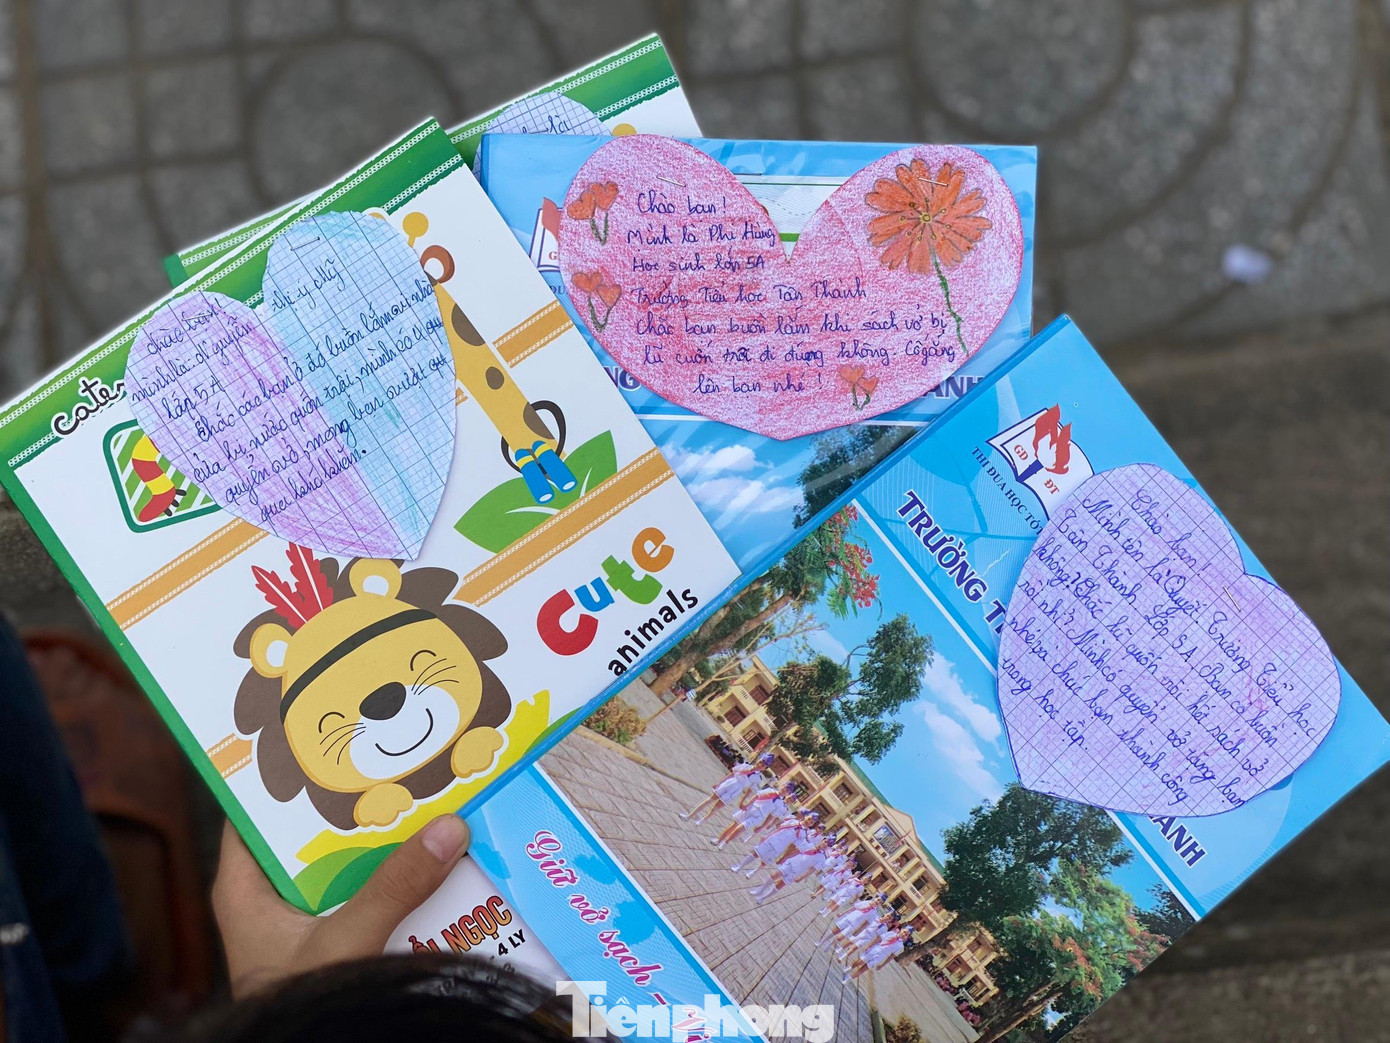 Chào bạn!
Mình là Phi Hùng
Học sinh lớp 5A
Trường Tiểu học Tân Thanh
Chắc bạn buồn lắm khi sách vở bị
lũ cuốn trôi đi đúng không. Cố gắng
lên bạn nhé!
chào bạn!
mình là
lớp 5A
chắc các bạn ở đó buồn lắm vì nhà
cửa bị nước cuốn trôi, mình có 4
quyển vở, mong bạn vượt
qua khó khăn.
cute
Cute
animals
GD
ĐT
THI ĐUA HỌC TỐT
TRƯỜNG T
ANH
ANH
Chào bạn
Mình tên là Quyết Trường Tiểu học
Tân Thanh Lớp 5A. Bạn có buồn
không? Chắc lũ cuốn trôi hết sách vở
rồi nhỉ? Mình có quyển vở tặng bạn
nhé, và chúc bạn thành công
trong học tập.
Giữ vở sạch -
NGỌC
4 LY
Tiênphong